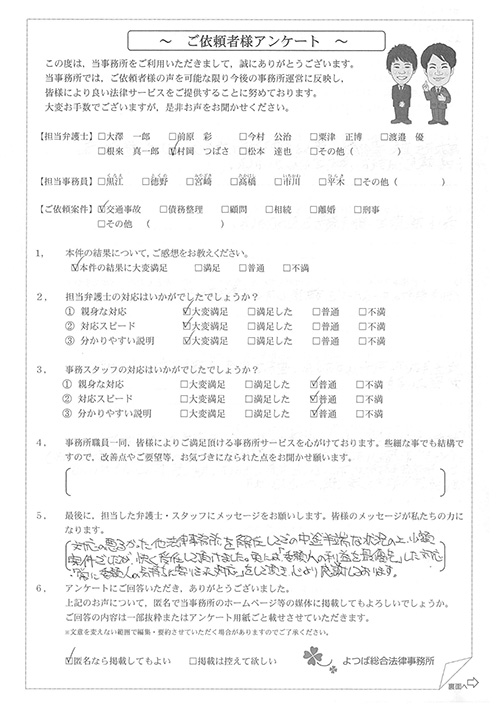 ～ ご依頼者様アンケート ～
この度は，当事務所をご利用いただきまして，誠にありがとうございます。
当事務所では，ご依頼者様の声を可能な限り今後の事務所運営に反映し，
皆様により良い法律サービスをご提供することに努めております。
大変お手数でございますが，是非お声をお聞かせください。
【担当弁護士】□大澤 一郎 □前原 彩 □今村 公治 □粟津 正博 □渡邉 優
□根來 真一郎 ☑村岡 つばさ □松本 達也 □その他（ ）
【担当事務員】□黒江 □徳野 □宮﨑 □高橋 □市川 □平木 □その他（ ）
【ご依頼案件】☑交通事故 □債務整理 □顧問 □相続 □離婚 □刑事
□その他 （ ）
1． 本件の結果について，ご感想をお教えください。
☑本件の結果に大変満足 □満足 □普通 □不満
2． 担当弁護士の対応はいかがでしたでしょうか？
① 親身な対応 ☑大変満足 □満足した □普通 □不満
② 対応スピード ☑大変満足 □満足した □普通 □不満
③ 分かりやすい説明 ☑大変満足 □満足した □普通 □不満
3． 事務スタッフの対応はいかがでしたでしょうか？
① 親身な対応 □大変満足 □満足した ☑普通 □不満
② 対応スピード □大変満足 □満足した ☑普通 □不満
③ 分かりやすい説明 □大変満足 □満足した ☑普通 □不満
4． 事務所職員一同，皆様によりご満足頂ける事務所サービスを心がけております。些細な事でも結構で
すので，改善点やご要望等，お気づきになられた点をお聞かせ願います。
5． 最後に，担当した弁護士・スタッフにメッセージをお願いします。皆様のメッセージが私たちの力に
なります。
対応の悪るかった他法律事務所を解任しての中途半端な状況の上，小額
案件でしたが，快く受任して頂けました。更には「委頼人の利益を最優先」した対応
「常に委頼人の気持ちに寄りそった対応」をして頂き，心より感謝しております。
6． アンケートにご回答いただき，ありがとうございました。
上記のお声について，匿名で当事務所のホームページ等の媒体に掲載してもよろしいでしょうか。
ご回答の内容は一部抜粋またはアンケート用紙ごと載せさせていただきます。
※文意を変えない範囲で編集・要約させていただく場合がありますのでご了承ください。
☑匿名なら掲載してもよい □掲載は控えて欲しい よつば総合法律事務所
裏面へ⇨